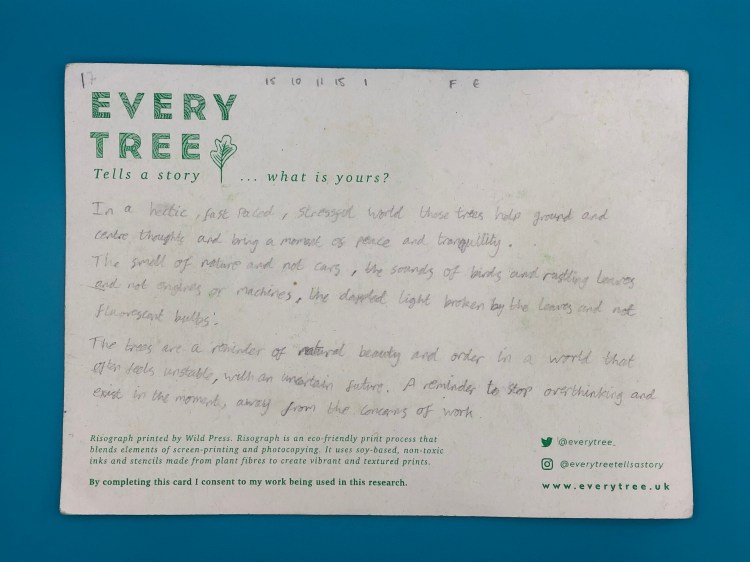 17 15 10 11 15 1 F E
EVERY
TREE
Tells a story ... what is yours?
In a hectic, fast paced, stressful world those trees help ground and
centre thoughts and bring a moment of peace and tranquility.
The smell of nature and not cars, the sounds of birds and rustling leaves
and not engines or machines, the dappled light broken by the leaves and not
fluorescent bulbs.
The trees are a reminder of natural beauty and order in a world that
often feels unstable, with an uncertain future. A reminder to stop overthinking and
exist in the moment, away from the concerns of work.
Risograph printed by Wild Press. Risograph is an eco-friendly print process that
blends elements of screen-printing and photocopying. It uses soy-based, non-toxic
inks and stencils made from plant fibres to create vibrant and textured prints.
By completing this card I consent to my work being used in this research.
@everytree_
@everytreetellsastory
www.everytree.uk